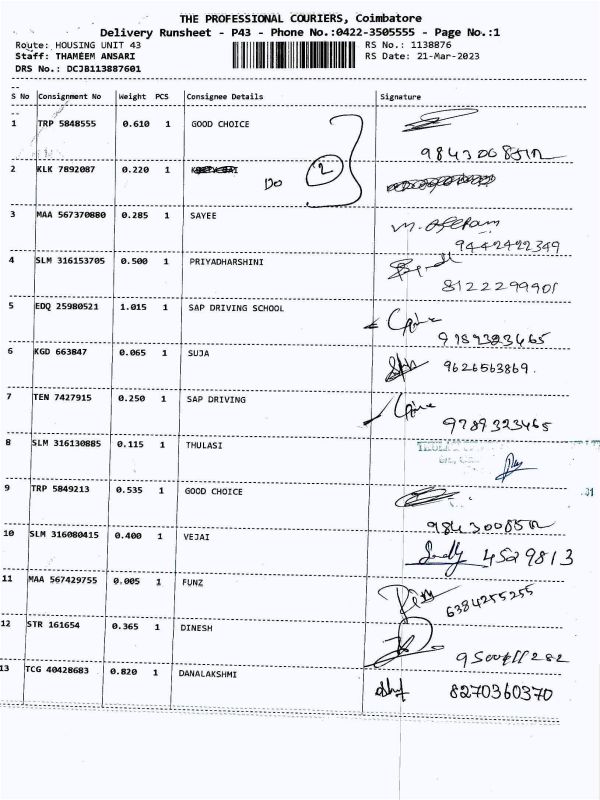 THE PROFESSIONAL COURIERS, Coimbatore
Delivery Runsheet - P43 - Phone No.:0422-3505555 - Page No.:1
Route: HOUSING UNIT 43 RS No.: 1138876
Staff: THAMEEM ANSARI RS Date: 21-Mar-2023
DRS No.: DCJB113887601
S No Consignment No Weight PCS Consignee Details Signature
1 TRP 5848555 0.610 1 GOOD CHOICE
2 KLK 7892087 0.220 1
Do 2
3 MAA 567370880 0.285 1 SAYEE
9442422349
4 SLM 316153705 0.500 1 PRIYADHARSHINI
8122299901
5 EDQ 25980521 1.015 1 SAP DRIVING SCHOOL
9789323465
6 KGD 663847 0.065 1 SUJA
9626563869.
7 TEN 7427915 0.250 1 SAP DRIVING
9789323465
8 SLM 316130885 0.115 1 THULASI
9 TRP 5849213 0.535 1 GOOD CHOICE
10 SLM 316080415 0.400 1 VEJAI
4529813
11 MAA 567429755 0.005 1 FUNZ
6384255255
12 STR 161654 0.365 1 DINESH
13 TCG 40428683 0.820 1 DANALAKSHMI
8270360370